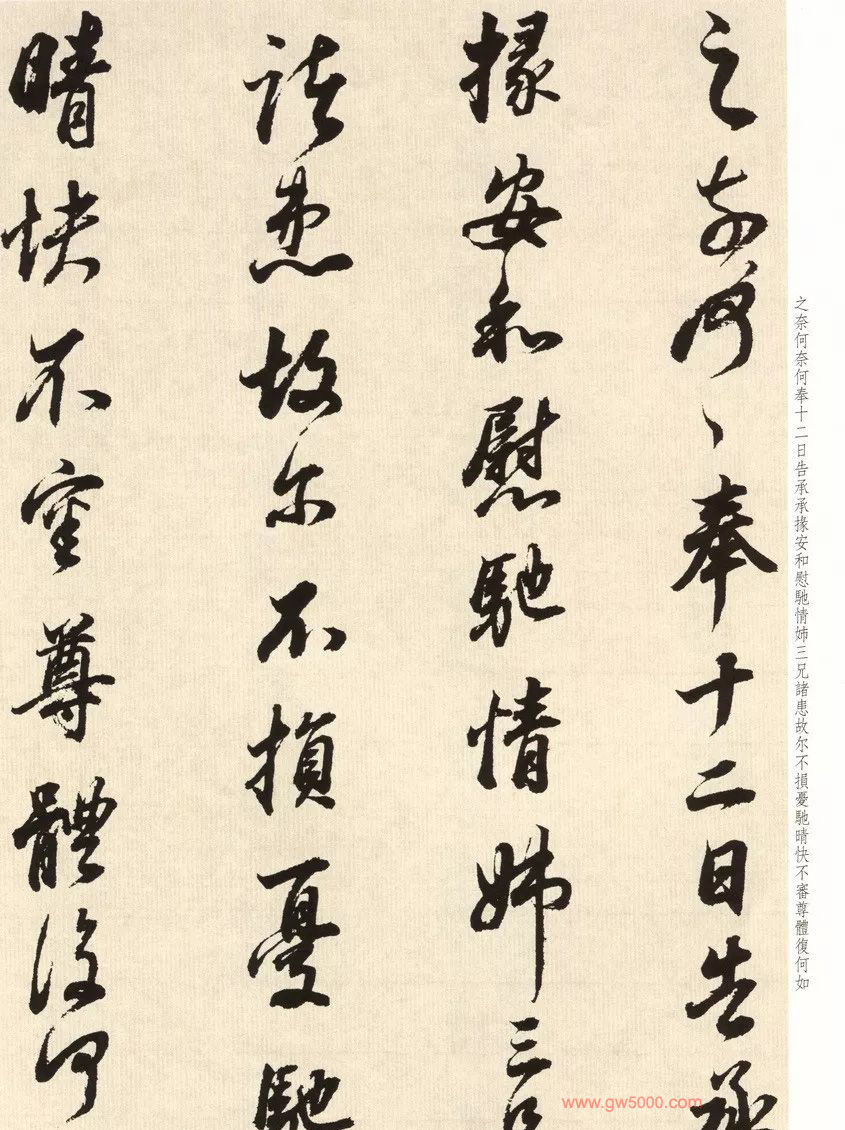 之奈何奈何奉十二日告承承掾安和慰馳情姊三兄諸患故尔不損憂馳晴快不審尊體復何如
之奈何〻奉十二日告承
掾安和慰馳情姊三兄
諸患故尔不損憂馳
晴快不審尊體復何
www.gw5000.com